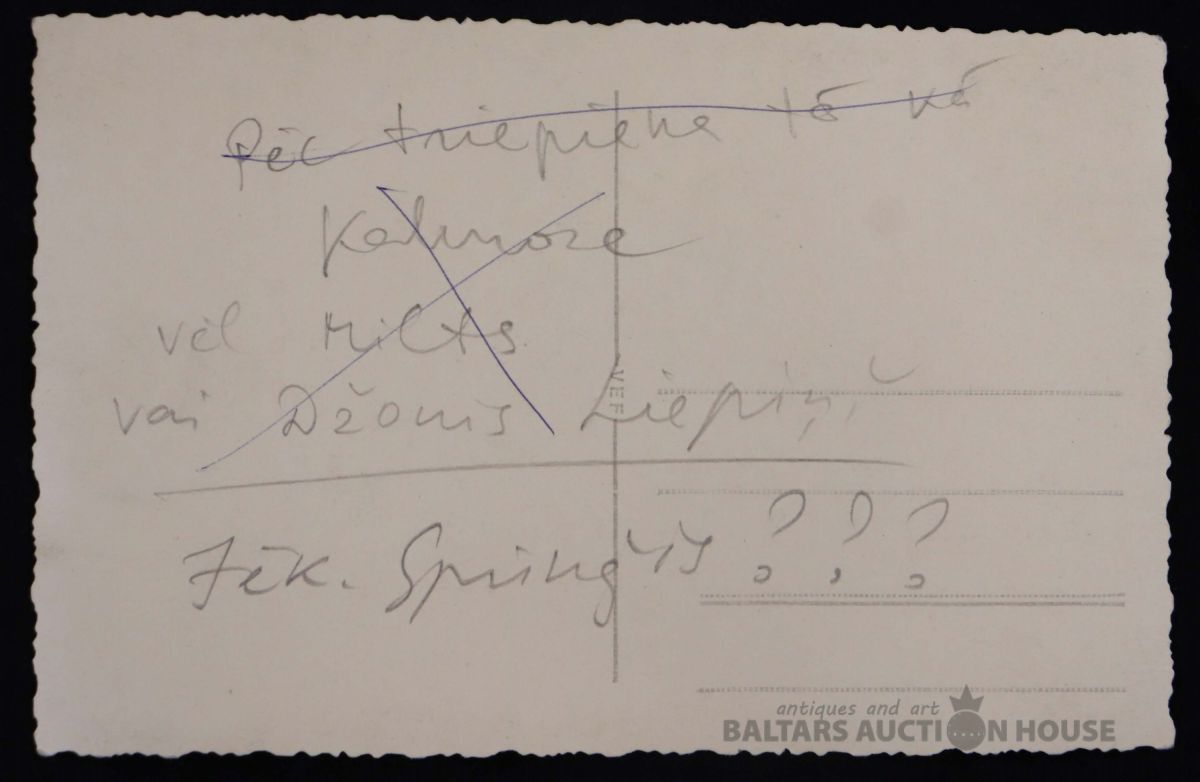 Pēc triepiena tā kā
Kalnroze
vēl Milts
vai Džonis Liepiņš
VEF
Jēk. Spriņģis ???
antiques and art
BALTARS AUCTION HOUSE